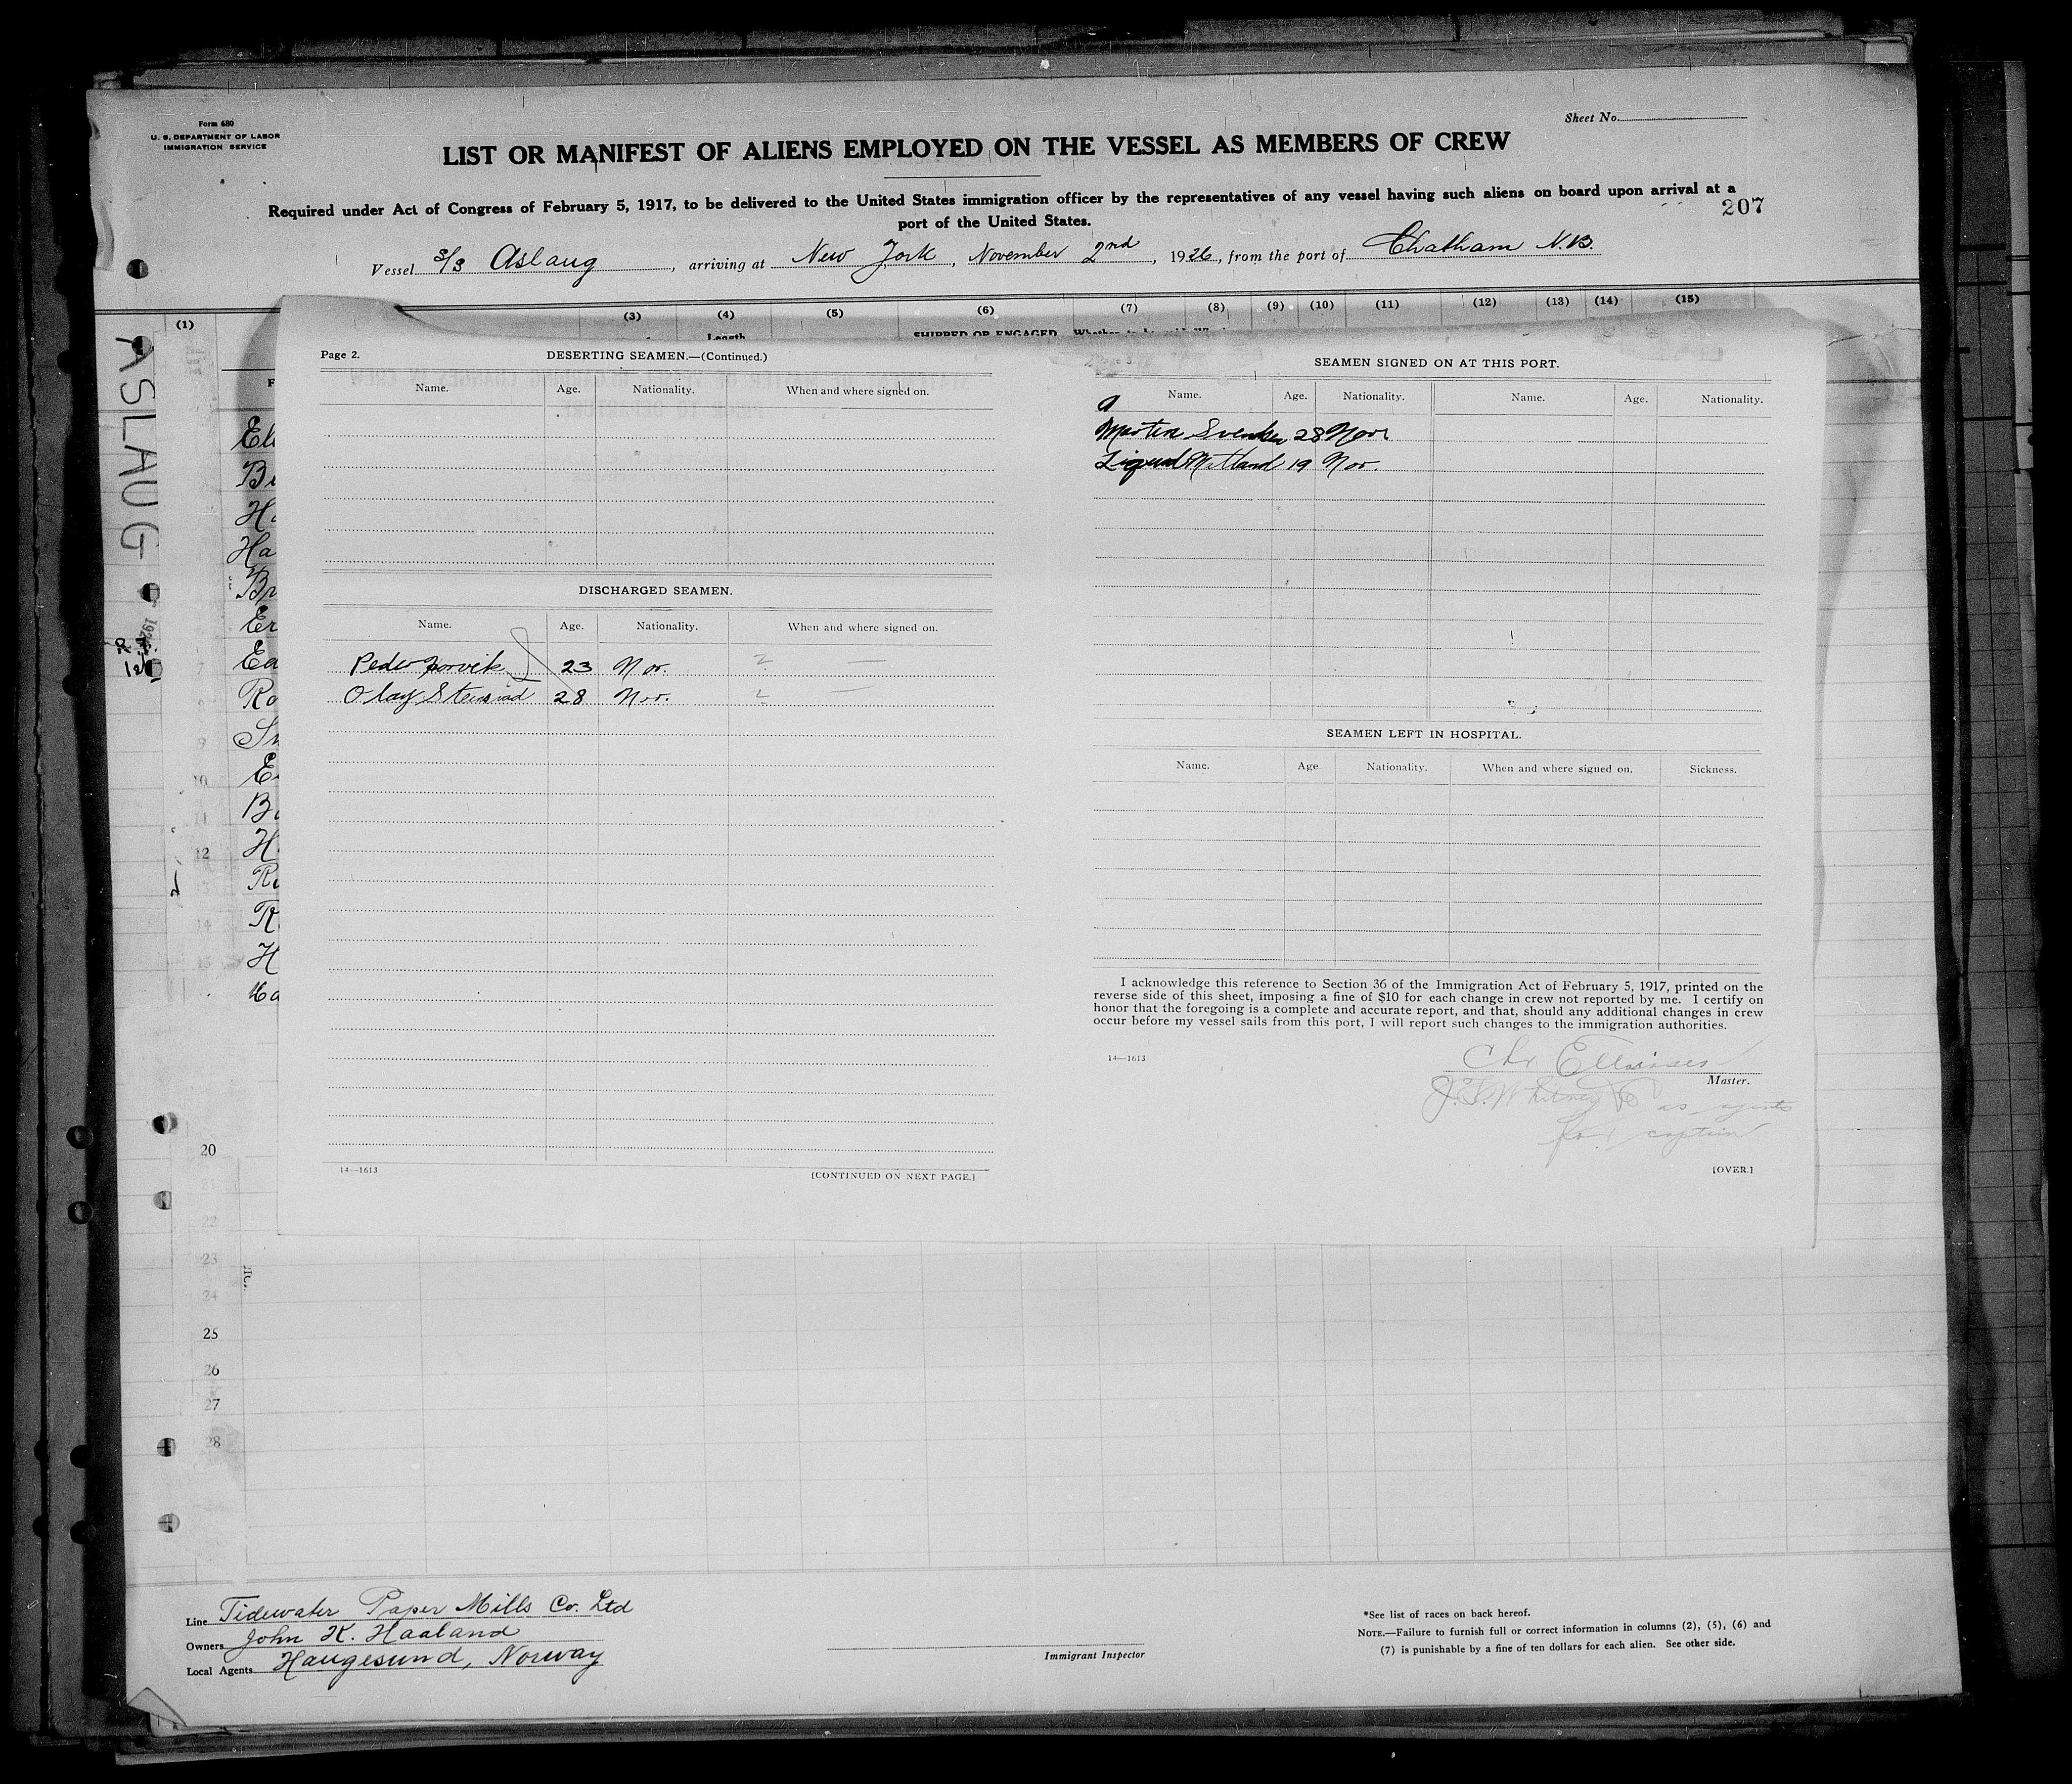 Form 680
U. S. DEPARTMENT OF LABOR
IMMIGRATION SERVICE
Sheet No.
LIST OR MANIFEST OF ALIENS EMPLOYED ON THE VESSEL AS MEMBERS OF CREW
Required under Act of Congress of February 5, 1917, to be delivered to the United States immigration officer by the representatives of any vessel having such aliens on board upon arrival at a
port of the United States.
207
Vessel S/S Aslaug, arriving at New York, November 2nd, 1926, from the port of Chatham N.B.
(1) (3) (4) (5) (6) (7) (8) (9) (10) (11) (12) (13) (14) (15)
Length SHIPPED OR ENGAGED Whether
ASLAUG
Page 2.
DESERTING SEAMEN.—(Continued.)
Name. Age. Nationality. When and where signed on.
DISCHARGED SEAMEN.
Name. Age. Nationality. When and where signed on.
Peder 23 Nor.
Olav 28 Nor.
14—1613
[CONTINUED ON NEXT PAGE.]
Page 3.
SEAMEN SIGNED ON AT THIS PORT.
Name. Age. Nationality. Name. Age. Nationality.
28 Nor
19 Nor.
SEAMEN LEFT IN HOSPITAL.
Name. Age Nationality. When and where signed on. Sickness.
I acknowledge this reference to Section 36 of the Immigration Act of February 5, 1917, printed on the
reverse side of this sheet, imposing a fine of $10 for each change in crew not reported by me. I certify on
honor that the foregoing is a complete and accurate report, and that, should any additional changes in crew
occur before my vessel sails from this port, I will report such changes to the immigration authorities.
14—1613
Chr
Master.
J. S. Whitney Co as agents
for captain
[OVER.]
El
Ha
Br
Er
Ed
Ro
7
9
10
11
12
13
14
15
20
22
23
24
25
26
27
28
Line Tidewater Paper Mills Co. Ltd
Owners John K. Haaland
Local Agents Haugesund, Norway
Immigrant Inspector
*See list of races on back hereof.
NOTE.—Failure to furnish full or correct information in columns (2), (5), (6) and
(7) is punishable by a fine of ten dollars for each alien. See other side.